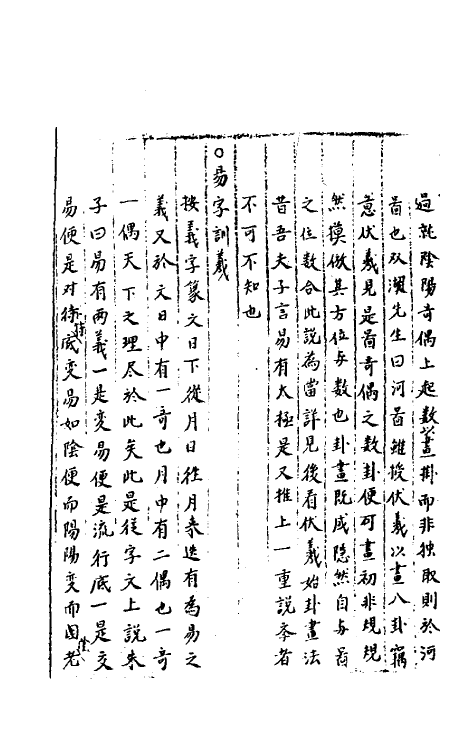 過乾陰陽奇偶上起数以畫卦而非独取則於河
畐也双湖先生曰河畐雖授伏羲以畫八卦竊
意伏羲見是畐奇偶之数卦便可畫初非規規
然模倣其方位与数也卦畫既成隐然自与畐
之位数合此說為當詳見後看伏羲始卦畫法
昔吾夫子言易有太極是又推上一重說孝者
不可不知也
○易字訓義
按義字篆文日下從月日徃月来迭有為易之
義又於文日中有一奇也月中有二偶也一奇
一偶天下之理尽於此矣此是従字文上說朱
子曰易有两義一是変易便是流行底一是交
易便是对待底変易如陰便而陽陽变而陰老